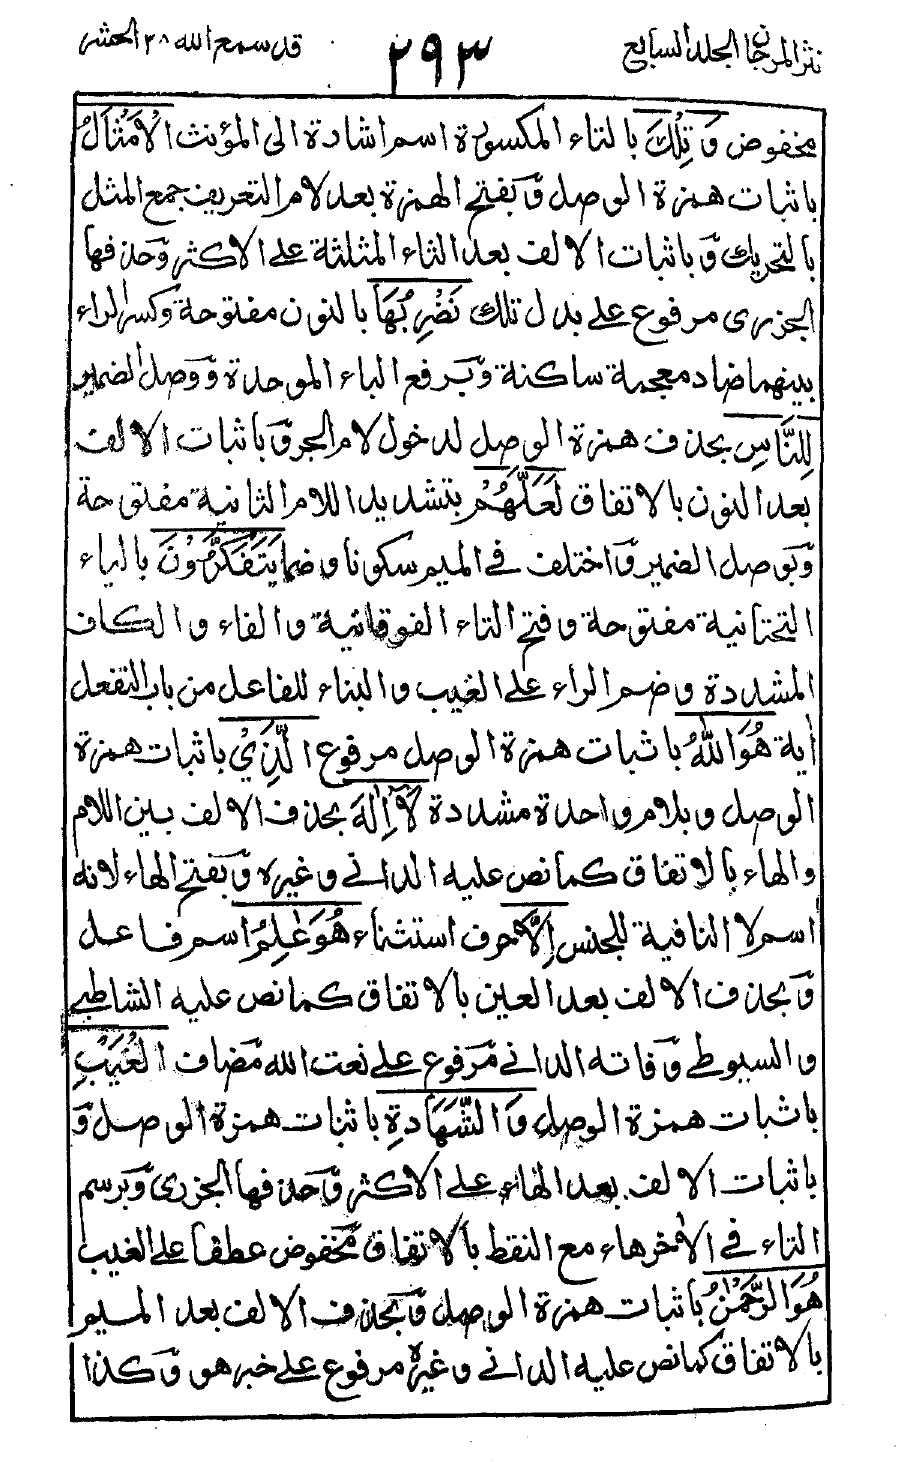 نثر المرجان الجلد السابع
٢٩٣
قد سمع الله ٢٨ الحشر
مخفوض وَتِلْكَ بالتاء المكسورة اسم اشارة الى المؤنث الْاَمْثَالُ
باثبات همزة الوصل وبفتح الهمزة بعد لام التعريف جمع المثل
بالتحريك وباثبات الالف بعد الثاء المثلثة على الاكثر وحذفها
الجزرى مرفوع على بدل تلك نَضْرِبُهَا بالنون مفتوحة وكسر الراء
بينهما ضاد معجمة ساكنة وبرفع الباء الموحدة ووصل الضمير
لِلنَّاسِ بحذف همزة الوصل لدخول لام الجر وباثبات الالف
بعد النون بالاتفاق لَعَلَّهُمْ بتشديد اللام الثانية مفتوحة
وبوصل الضمير واختلف في الميم سكونا وضما يَتَفَكَّرُوْنَ بالياء
التحتانية مفتوحة وفتح التاء الفوقانية والفاء والكاف
المشددة وضم الراء على الغيب والبناء للفاعل من باب التفعل
اية هُوَ اللّٰهُ باثبات همزة الوصل مرفوع الَّذِيْ باثبات همزة
الوصل وبلام واحدة مشددة لَآ اِلٰهَ بحذف الالف بين اللام
والهاء بالاتفاق كما نص عليه الداني وغيره وبفتح الهاء لانه
اسم لا النافية للجنس اِلَّا حرف استثناء هُوَ عٰلِمُ اسم فاعل
وبحذف الالف بعد العين بالاتفاق كما نص عليه الشاطبي
والسيوطي وفاته الداني مرفوع على نعت الله مضاف الْغَيْبِ
باثبات همزة الوصل وَالشَّهَادَةِ باثبات همزة الوصل و
باثبات الالف بعد الهاء على الاكثر وحذفها الجزرى وبرسم
التاء في الاخر هاء مع النقط بالاتفاق مخفوض عطفا على الغيب
هُوَ الرَّحْمٰنُ باثبات همزة الوصل وبحذف الالف بعد الميم
بالاتفاق كما نص عليه الداني وغيره مرفوع على خبر هو وكذا